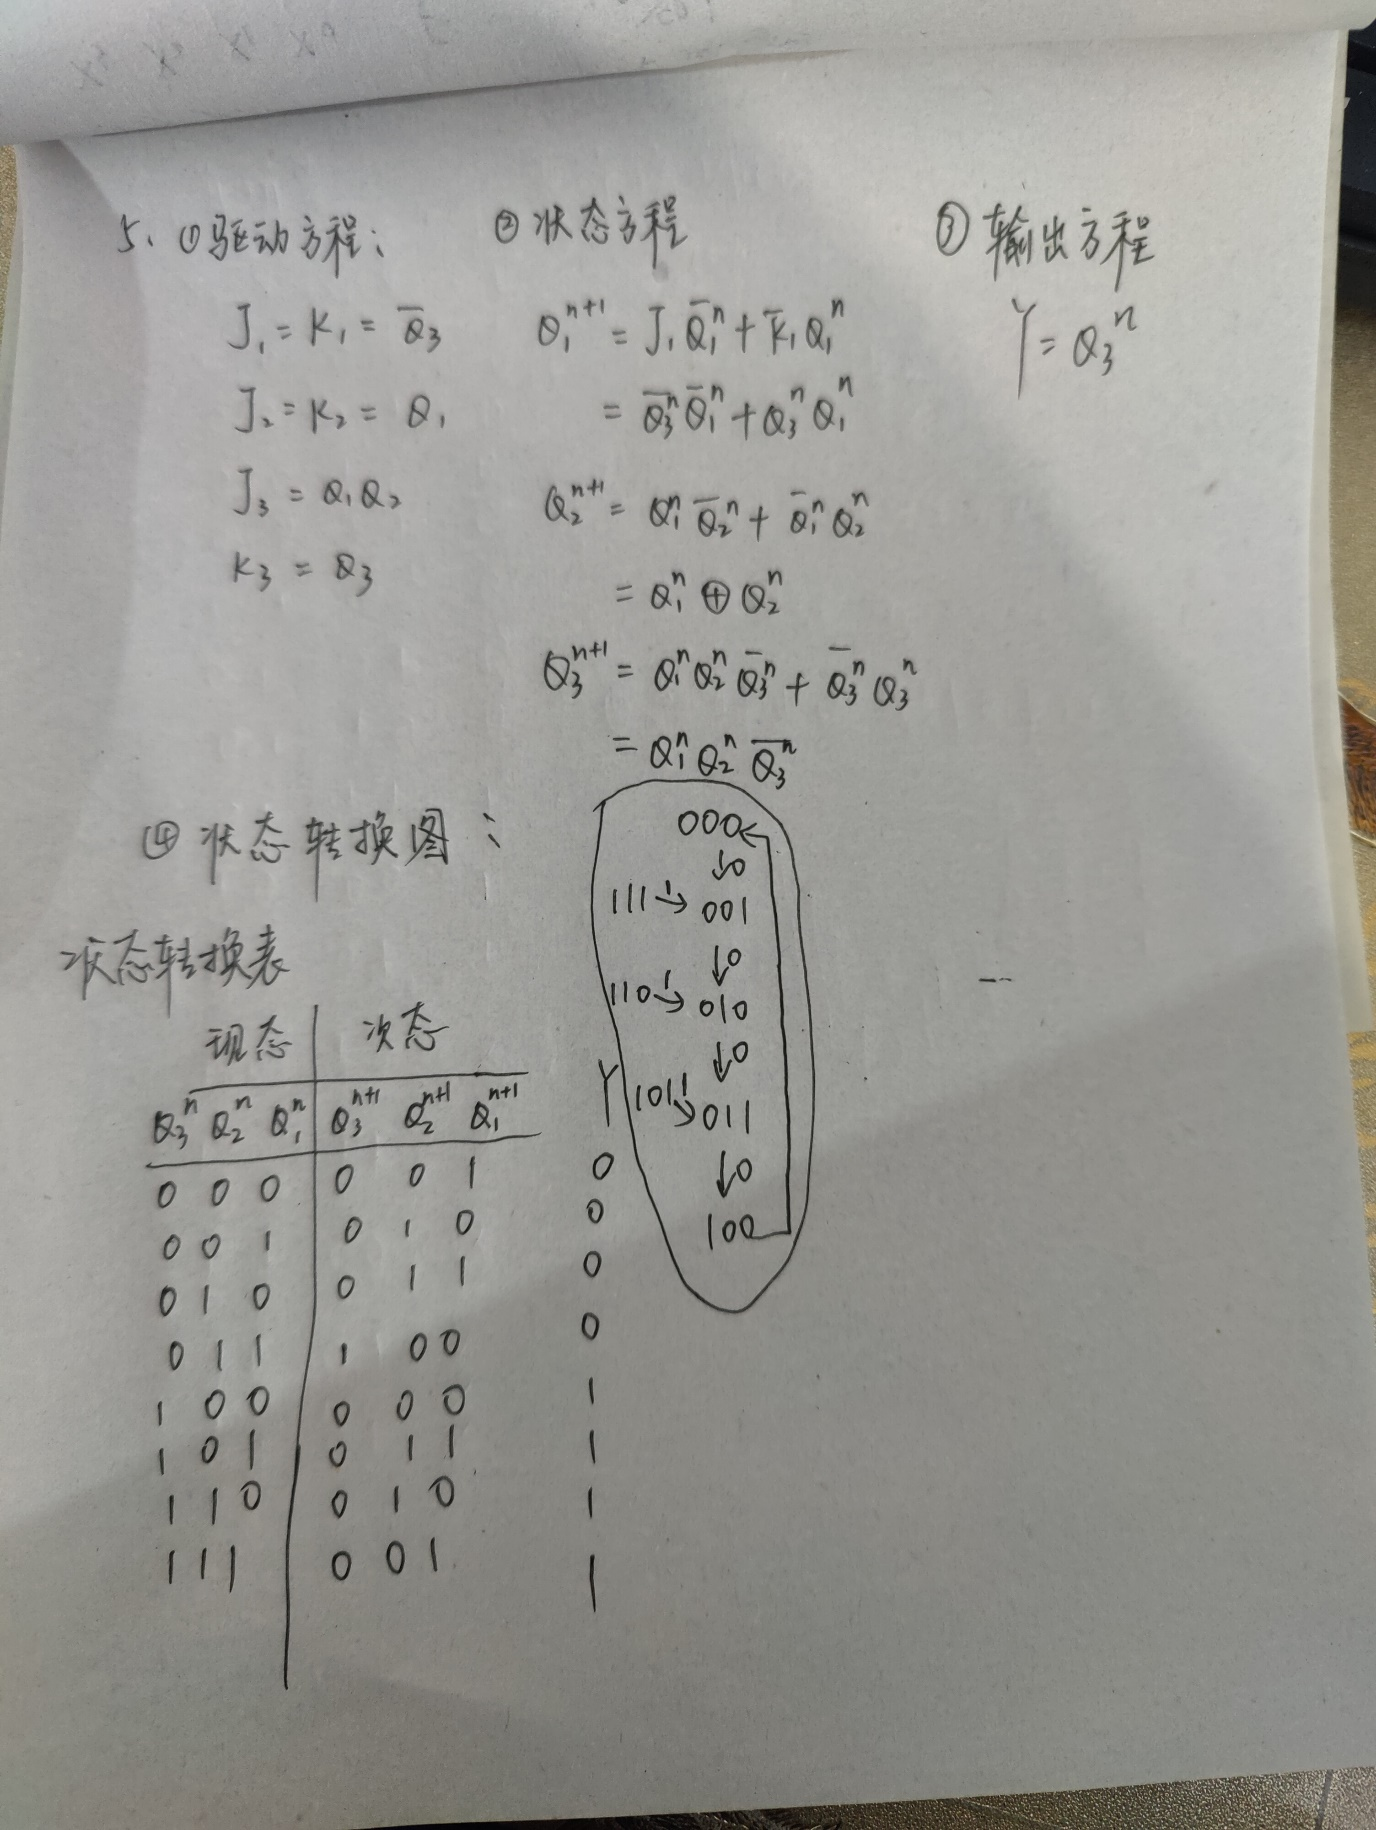 5. ①驱动方程: ②状态方程 ③输出方程
J₁ = K₁ = Q̅₃
J₂ = K₂ = Q₁
J₃ = Q₁Q₂
K₃ = Q₃
Q₁ⁿ⁺¹ = J₁Q̅₁ⁿ + K̅₁Q₁ⁿ
= Q̅₃ⁿQ̅₁ⁿ + Q₃ⁿQ₁ⁿ
Q₂ⁿ⁺¹ = Q₁ⁿQ̅₂ⁿ + Q̅₁ⁿQ₂ⁿ
= Q₁ⁿ⊕Q₂ⁿ
Q₃ⁿ⁺¹ = Q₁ⁿQ₂ⁿQ̅₃ⁿ + Q̅₃ⁿQ₃ⁿ
= Q₁ⁿQ₂ⁿQ̅₃ⁿ
Y = Q₃ⁿ
④状态转换图:
000
↓0
111 →1 001
↓0
110 →1 010
↓0
101 →1 011
↓0
100
状态转换表
现态 次态
Q₃ⁿ Q₂ⁿ Q₁ⁿ Q₃ⁿ⁺¹ Q₂ⁿ⁺¹ Q₁ⁿ⁺¹ Y
0 0 0 0 0 1 0
0 0 1 0 1 0 0
0 1 0 0 1 1 0
0 1 1 1 0 0 0
1 0 0 0 0 0 1
1 0 1 0 1 1 1
1 1 0 0 1 0 1
1 1 1 0 0 1 1